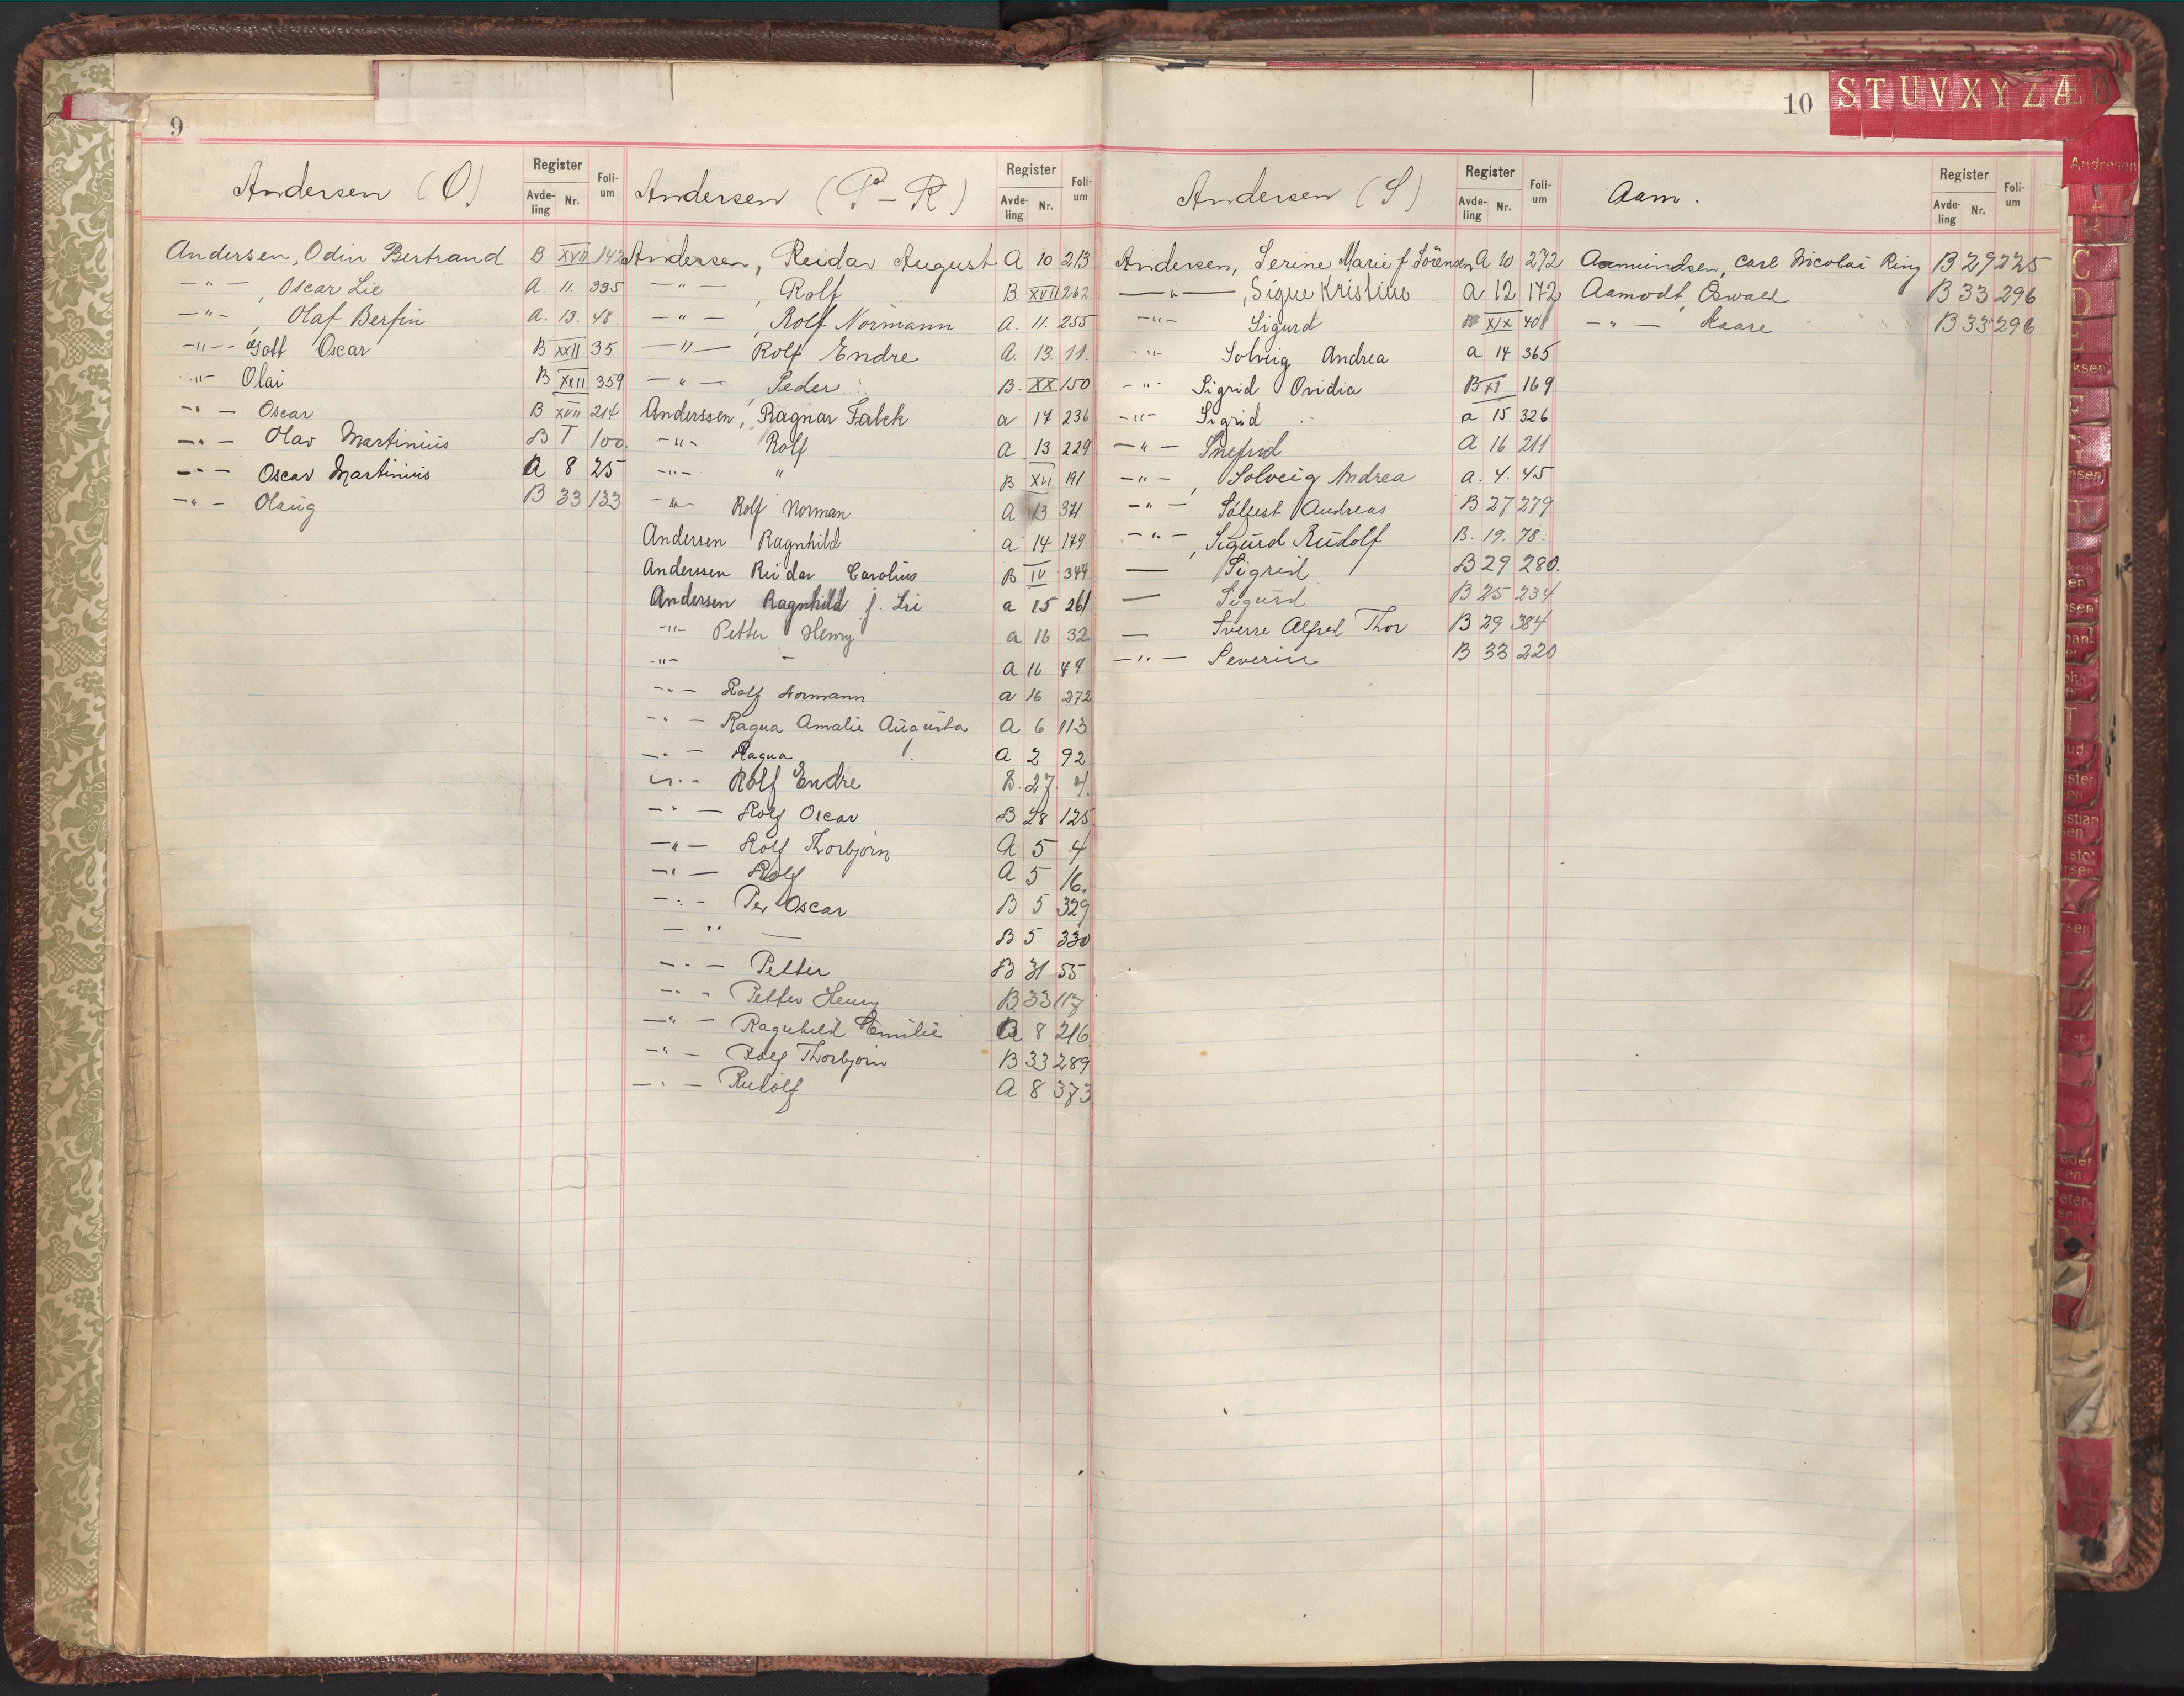 9
Andersen (O)
Register
Avde-ling Nr.
Foli-um
Andersen, Odin Bertrand B XVII 142
-"- , Oscar Lie A. 11. 335
-"- , Olaf Berfin A. 13. 48.
-"- Gott Oscar B XXII 35
-"- Olai B XXII 359
-"- Oscar B XVII 214
-"- Olav Martinius B I 100.
-"- Oscar Martinius A 8 25
-"- Olaug B 33 133
Andersen (P-R)
Register
Avde-ling Nr.
Foli-um
Andersen, Reidar August A 10 213
-"- , Rolf B. XVII 262
-"- , Rolf Normann A. 11. 255
-"- Rolf Endre A. 13. 11.
-"- , Peder B. XX 150
Anderssen, Ragnar Falck a 17 236
-"- Rolf A 13 229
-"- " B XVI 191
-"- Rolf Norman A 13 371
Andersen Ragnhild a 14 179
Anderssen Reidar Carolius B IV 344
Andersen Ragnhild f. Lie a 15 261
-"- Petter Henry a 16 32
-"- - A 16 49
-"- Rolf Normann a 16 272
-"- Ragna Amalie Augusta A 6 113
-"- Ragna A 2 92
-"- Rolf Endre B. 27. 4.
-"- Rolf Oscar B 28 125
-"- Rolf Thorbjørn A 5 4
-"- Rolf A 5 16.
-"- Per Oscar B 5 329
-"- — B 5 330
-"- Petter B 31 55
-"- Petter Henry B 33 117
-"- Ragnhild Emilie A 8 216.
-"- Rolf Thorbjørn B 33 289
-"- Rudolf A 8 373
10
S T U V X Y Z Æ Ø
Andersen (S)
Register
Avde-ling Nr.
Foli-um
Andersen, Serine Marie f Sörensen A 10 272
-"- , Signe Kristine A 12 172
-"- Sigurd B XIX 408
-"- Solveig Andrea a 14 365
-"- Sigrid Ovidia B XI 169
-"- Sigrid a 15 326
-"- Snefrid A 16 211
-"- , Solveig Andrea a. 4. 45
-"- Sölfest Andreas B 27 279
-"- , Sigurd Rudolf B. 19. 78.
— Sigrid B 29 280.
— Sigurd B 25 234
— Sverre Alfred Thor B 29 384
-"- Severin B 33 220
Aam.
Register
Avde-ling Nr.
Foli-um
Aamundsen, Carl Nicolai Ring B 29 225
Aamodt, Oswald B 33 296
-"- Kaare B 33 296
Andresen